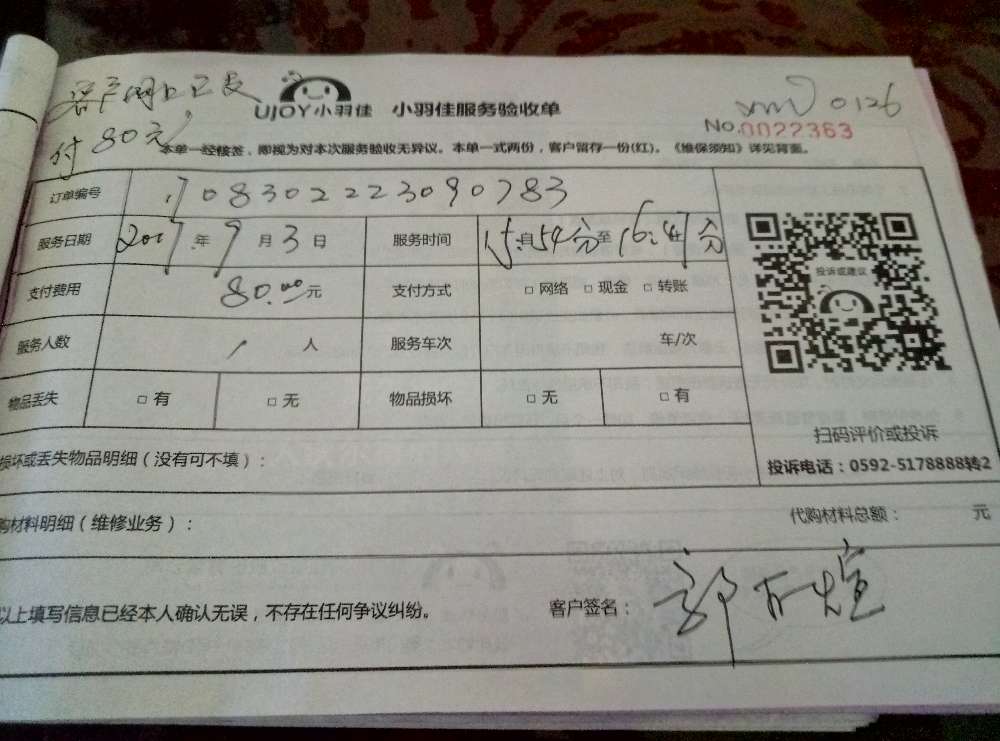 客户网上已支
付80元
UJOY小羽佳 小羽佳服务验收单
0126
No.0022363
本单一经接签，即视为对本次服务验收无异议。本单一式两份，客户留存一份(红)。《维保须知》详见背面。
订单编号 17083022223090783
服务日期 2017年9月3日 服务时间 15:54分至16:47分
支付费用 80.00元 支付方式 □网络 □现金 □转账
服务人数 1 人 服务车次 车/次
物品丢失 □有 □无 物品损坏 □无 □有
投诉或建议
扫码评价或投诉
投诉电话：0592-5178888转2
损坏或丢失物品明细（没有可不填）：
购材料明细（维修业务）： 代购材料总额： 元
以上填写信息已经本人确认无误，不存在任何争议纠纷。 客户签名：郭